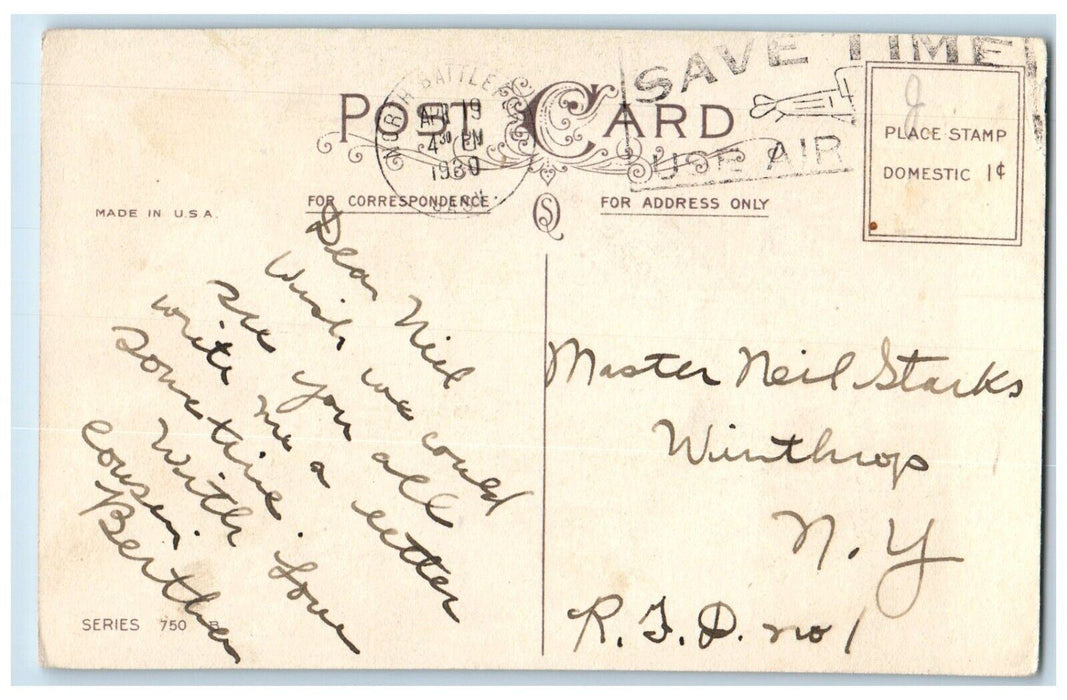 POST CARD
NORTH BATTLEF
APR 19
4 30 PM
1930
SASK
SAVE TIME
USE AIR
PLACE STAMP
DOMESTIC 1¢
MADE IN U.S.A.
FOR CORRESPONDENCE
FOR ADDRESS ONLY
Dear Neil
Wish we could
see you all
write me a letter
sometime.
With love
Cousin
Bertha
Master Neil Starks
Winthrop
N.Y
R.F.D. no 1
SERIES 750 B